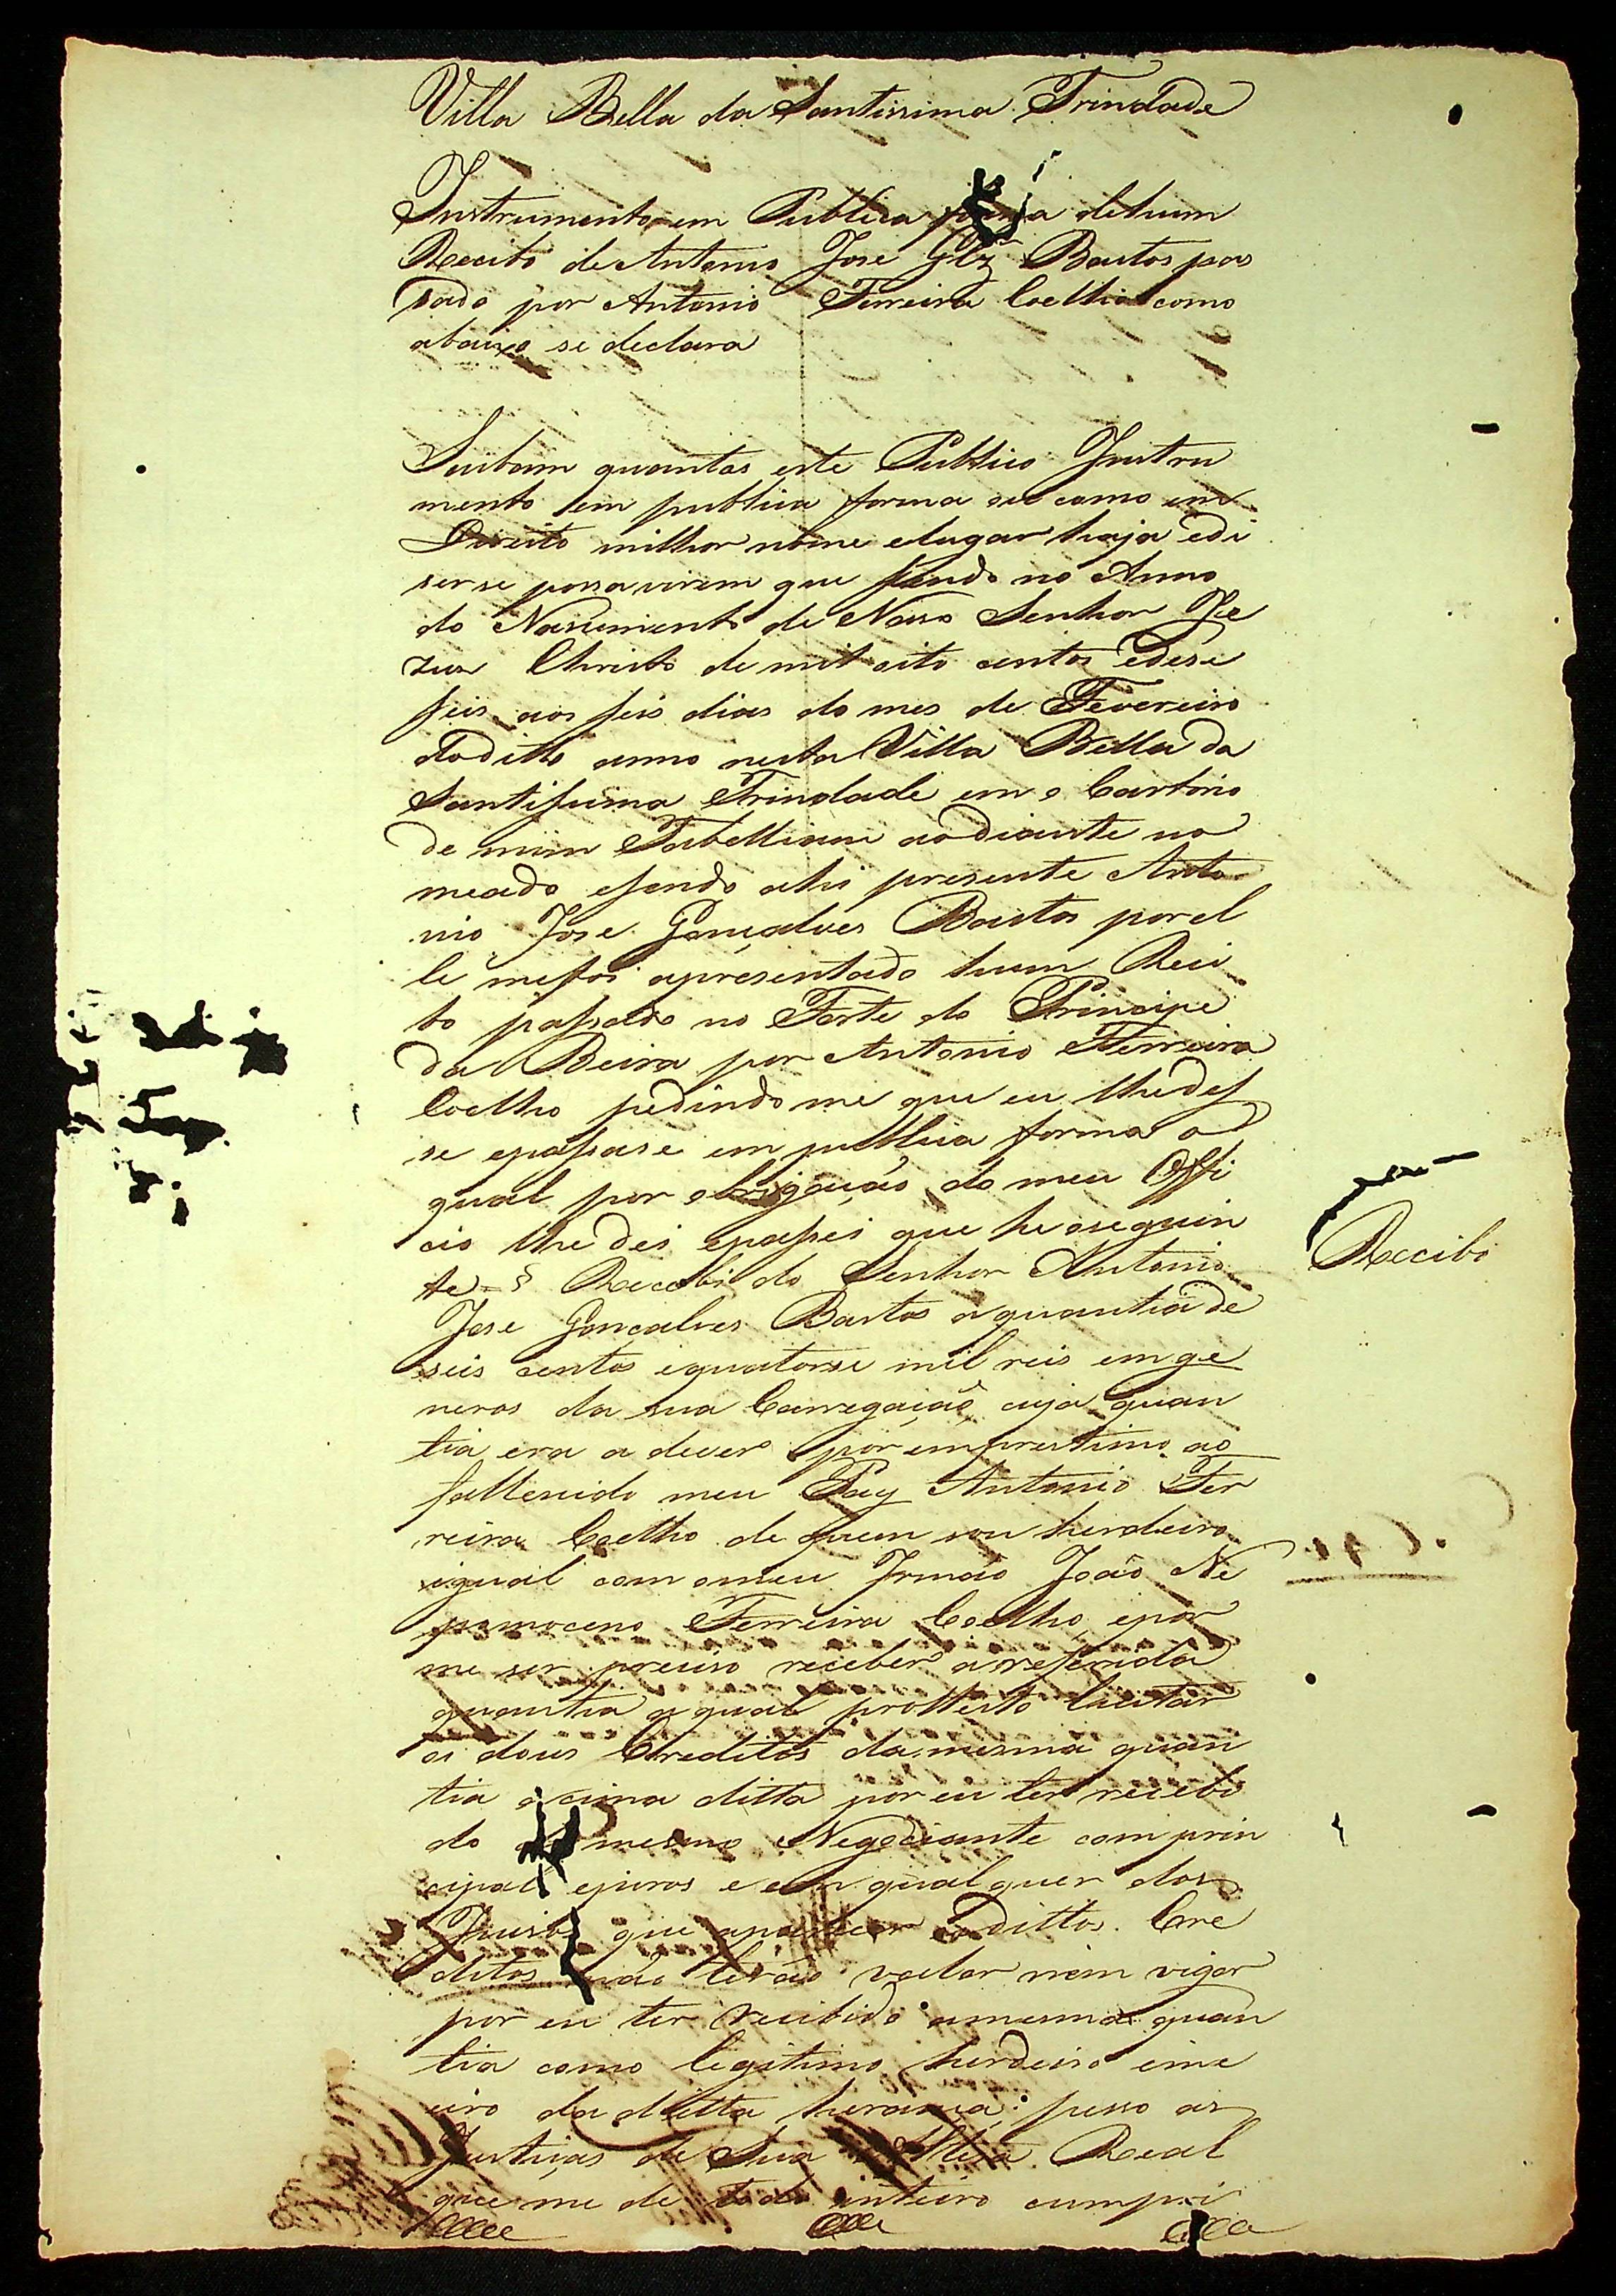 Villa Bella da Santissima Trindade
Instrumento em Publica forma de hum
Recibo de Antonio Jose Glz Bastos pas
sado por Antonio Ferreira Coelho como
abaixo se declara
Saibam quantos este Publico Instru
mento em publica forma ou como em
Direito milhor nome elugar haja edi
serse possa virem que sendo no Anno
do Nascimento de Nosso Senhor Je
zus Christo de mil oito centos edese
seis aos seis dias do mes de Fevereiro
do ditto anno nesta Villa Bella da
Santissima Trindade em o Cartorio
de mim Tabelliam ao diante no
meado esendo ahi presente Anto
nio Jose Gonçalves Bastos por el
le mefoi apresentado hum Reci
bo passado no Forte do Principe
da Beira por Antonio Ferreira
Coelho pedindo me que eu lhe des
se epassase em publica forma o
qual por obrigação do meu Offi
cio lhe dei epassei que he oseguin
te = § Recebi do Senhor Antonio
Recibo
Jose Gonçalves Bastos a quantia de
seis centos equatorse mil reis em ge
neros da sua Carregação cuja quan
tia era a dever por emprestimo ao
fallecido meu Pay Antonio Fer
reira Coelho de quem sou herdeiro
igual com omeu Irmão João Ne
pomoceno Ferreira Coelho, epor
me ser preciso receber a referida
quantia a qual protesto
os dous Creditos da mesma quan
tia acima ditta por eu ter recebi
do do mesmo Negociante com prin
cipal ejuros e em qual quer dos
Juisos que aparecer os dittos Cre
ditos não terão valor nem vigor
por eu ter recibido amesma quan
tia como legitimo herdeiro eme
eiro da ditta herança: pesso as
Justiças de Sua Alteza Real
que me de todo inteiro cumpri